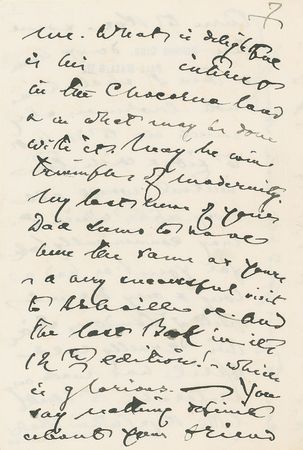 7
me. What is delightful
is his interest
in the Chocorua land
& in what may be done
with it. May he win
triumphs of modernity.
My last news of your
Dad seems to have
been the same as yours
- a very successful visit
to
the last Book in its
12th edition! - which
is glorious. — You
say nothing definite
about your friend